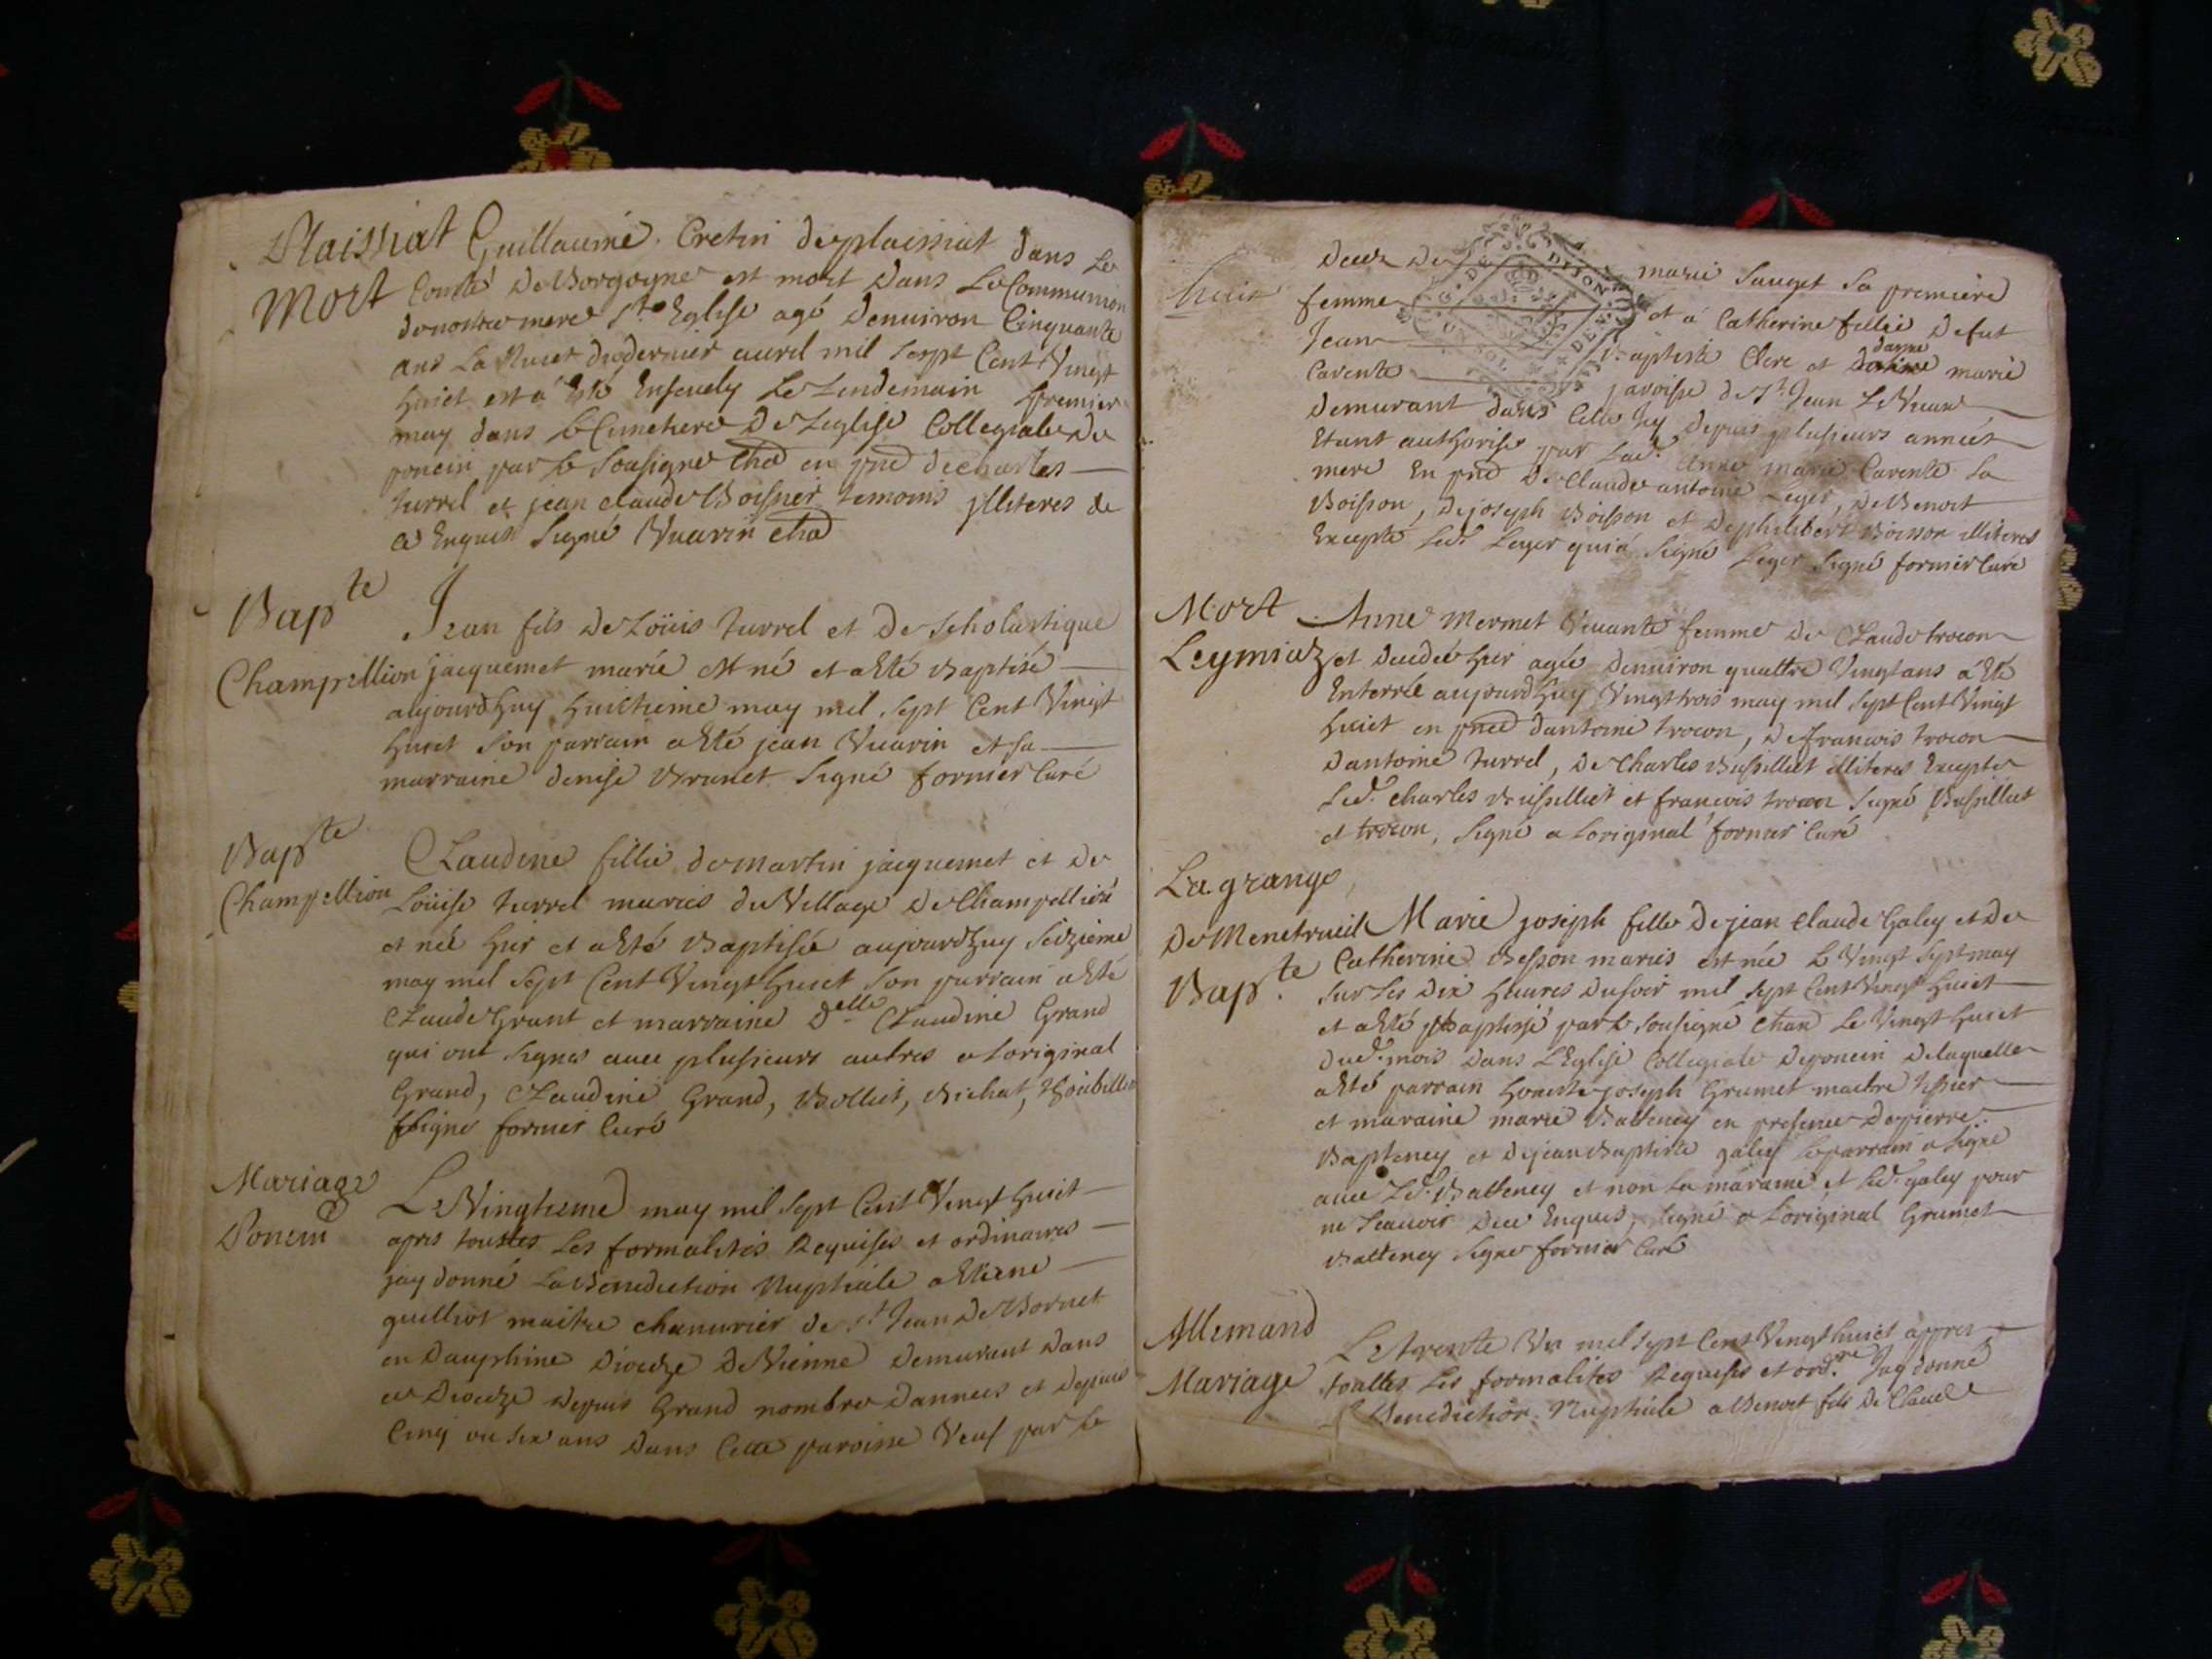 Plaissiat Guillaume Cretin deplaissiat dans Le
Mort Comté De Borgogne est mort Dans La Communion
denostre mere Ste Eglise agé Denuiron Cinquante
ans La Nuict du dernier auril mil Sept Cent Vingt
Huict est a Esté Enseuely Le Lendemain premier
may dans Le Cimetiere De Leglise Collegiale De
poncin par Le Sousigné en pnce decharles
Turrel et jean claude Boisner temoins jlliteres de
ce Enquis Signé Vuarin
Bapte Jean fils De Loüis Turrel et De Scholastique
Champellion jacquemet marié Est né et a Esté Baptisé
aujourdhuy Huictieme may mil Sept Cent Vingt
Huict Son parrain a Esté jean Vuarin et Sa
marraine denise Brunet Signé fornier Curé
Bapte Claudine fillie de Martin jacquemet et De
Champellion Loüise Turrel mariés du Village De Champellion
et née Hier et a Esté Baptisée aujourdhuy Seizieme
may mil Sept Cent Vingt Huict Son parrain a Esté
Claude Grant et marraine Delle Claudine Grand
qui ont Signés auec plusieurs autres a Loriginal
Grand, Claudine Grand, Bolliet, Bichat,
Signé fornier Curé
Mariage Le Vingtieme may mil Sept Cent Vingt Huict
Poncin apres touttes Les formalités Requises et ordinaires
jay donné La Benediction Nuptiale a Etiene
guilliot maitre chanurier de St Jean De Bornet
en Dauphine Diocèze De Vienne Demurant Dans
ce Diocèze depuis Grand nombre Dannees et Depuis
Cinq ou Six ans Dans Cette paroisse Veuf par Le
Decez De marie Sauget Sa premiere
femme et a Catherine fillie Defut
Jean Baptiste Clere et Danne marie
Carente paroisse de St Jean Le Vieux
Demurant dans Celle Icy Depuis plusieurs années
Etant authorisé par Lad. Anne marie Carente Sa
mere En pnce De Claude antoine Leger, De Benoit
Boisson, Dejoseph Boisson et Dephilibert Boisson illiteres
Excepté Led. Leger qui a Signé Leger Signé fornier Curé
Mort Anne Mermet Viuante femme De Claude trocon
Leymiaz et Decedée Hier agée Denuiron quattre Vingt ans a Eté
Enterrée aujourdhuy Vingt trois may mil Sept Cent Vingt
Huict en pnce dantoine trocon, De francois trocon
Dantoine Turrel, De Charles Bussilliet illiteres Exceptés
Led. Charles Bussilliet et francois trocon Signé Bussilliet
et trocon, Signé a Loriginal fornier Curé
La grange
De Menetrueil Marie joseph fille Dejean Claude Galey et De
Bapte Catherine Besson mariés est née Le Vingt Sept may
Sur Les Dix Heures Du Soir mil Sept Cent Vingt Huict
et a Esté Baptisé par Le Sousigné Le Vingt Huict
Dud. mois Dans L'Eglise Collegiale Deponcin Delaquelle
a Esté parrain Honeste joseph Grumet maitre tissier
et maraine marie Batteney en presence Depierre
Bapteney et Dejean Baptiste galey Le parrain a Signé
auec Led. Batteney et non La maraine et Led. galey pour
ne Scauoir Dice Enquis, Signé a Loriginal Grumet
Batteney Signé fornier Curé
Allemand Le trente Un mil Sept Cent Vingt huict appres
Mariage touttes Les formalités Requises et ordre Jay donné
Benediction Nuptiale a Benoit fils De Claude